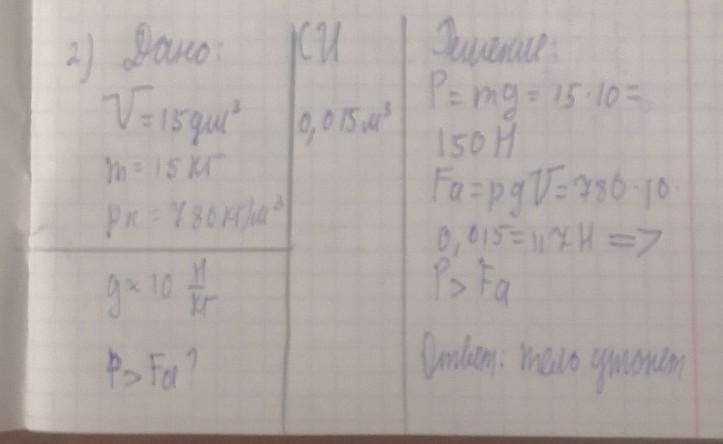 2) Дано:
V = 15 дм³
m = 15 кг
ρк = 780 кг/м³
g ≈ 10 Н/кг
P > Fa?
СИ
0,015 м³
Решение:
P = mg = 15 · 10 =
150 Н
Fa = ρgV = 780 · 10 ·
0,015 = 117 Н =>
P > Fa
Ответ: тело утонет